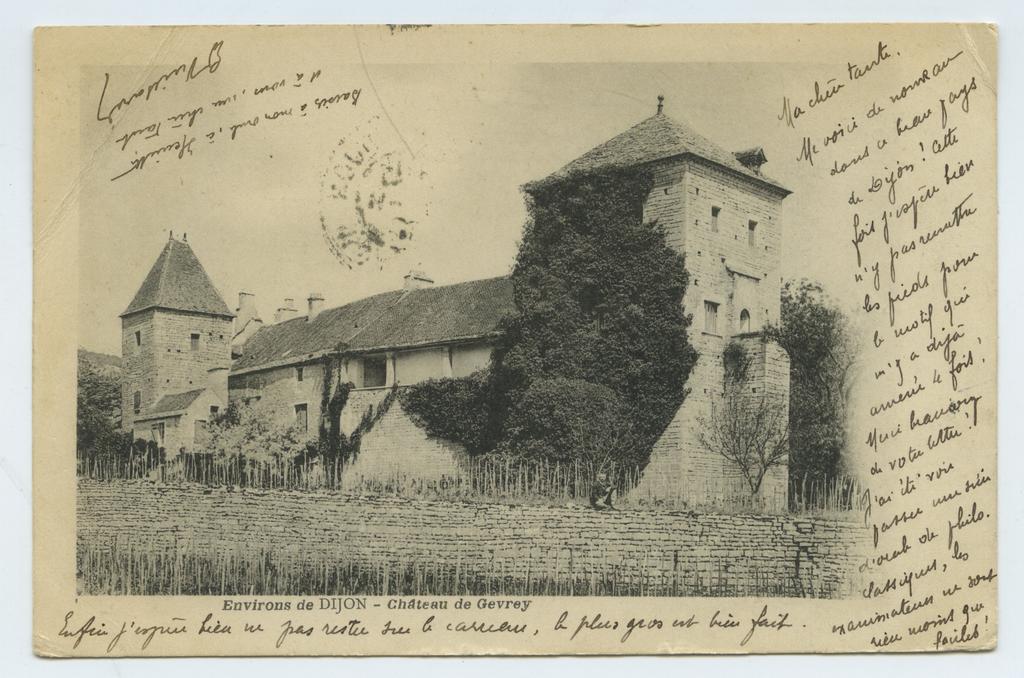 Ma chère tante.
Me voici de nouveau
dans ce beau pays
de Dijon ! Cette
fois j'espère bien
n'y pas remettre
les pieds pour
le motif qui
m'y a déjà
amené 4 fois !
Merci beaucoup
de votre lettre !
J'ai été voir
passer une série
d'oraux de philo.
classiques, les
examinateurs ne sont
rien moins que
faciles !
Enfin j'espère bien ne pas rester sur le carreau, le plus gros est bien fait.
Baisers à mon oncle, à
Henriette
et à vous, ma chère tante.
Environs de DIJON - Château de Gevrey